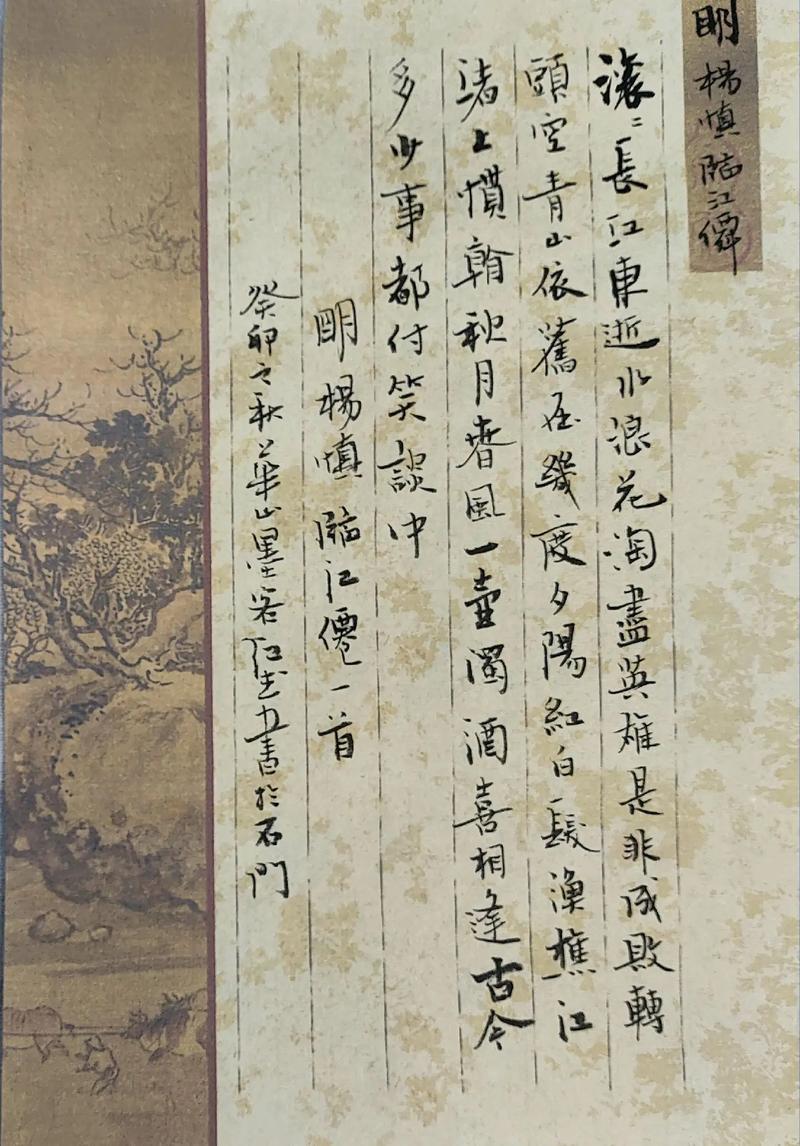 明楊慎臨江僊
滚〻長江東逝水浪花淘盡英雄是非成敗轉
頭空青山依舊在幾度夕陽紅白髮漁樵江
渚上慣看秋月春風一壺濁酒喜相逢古今
多少事都付笑談中
明楊慎臨江僊一首
癸卯之秋華山墨客書於石門